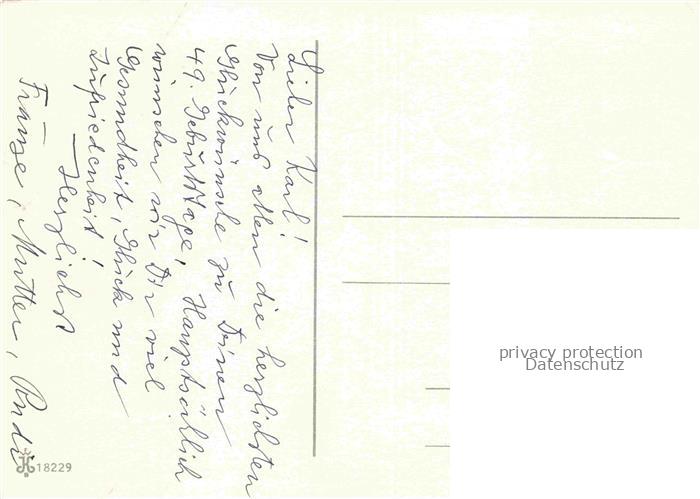 Lieber Karl!
Von uns allen die herzlichsten
Glückwünsche zu Deinem
49. Geburtstage, Hauptsächlich
wünschen wir Dir viel
Gesundheit, Glück und
Zufriedenheit!
Herzlichst
Franze, Mutter, Rudi
18229
privacy protection
Datenschutz